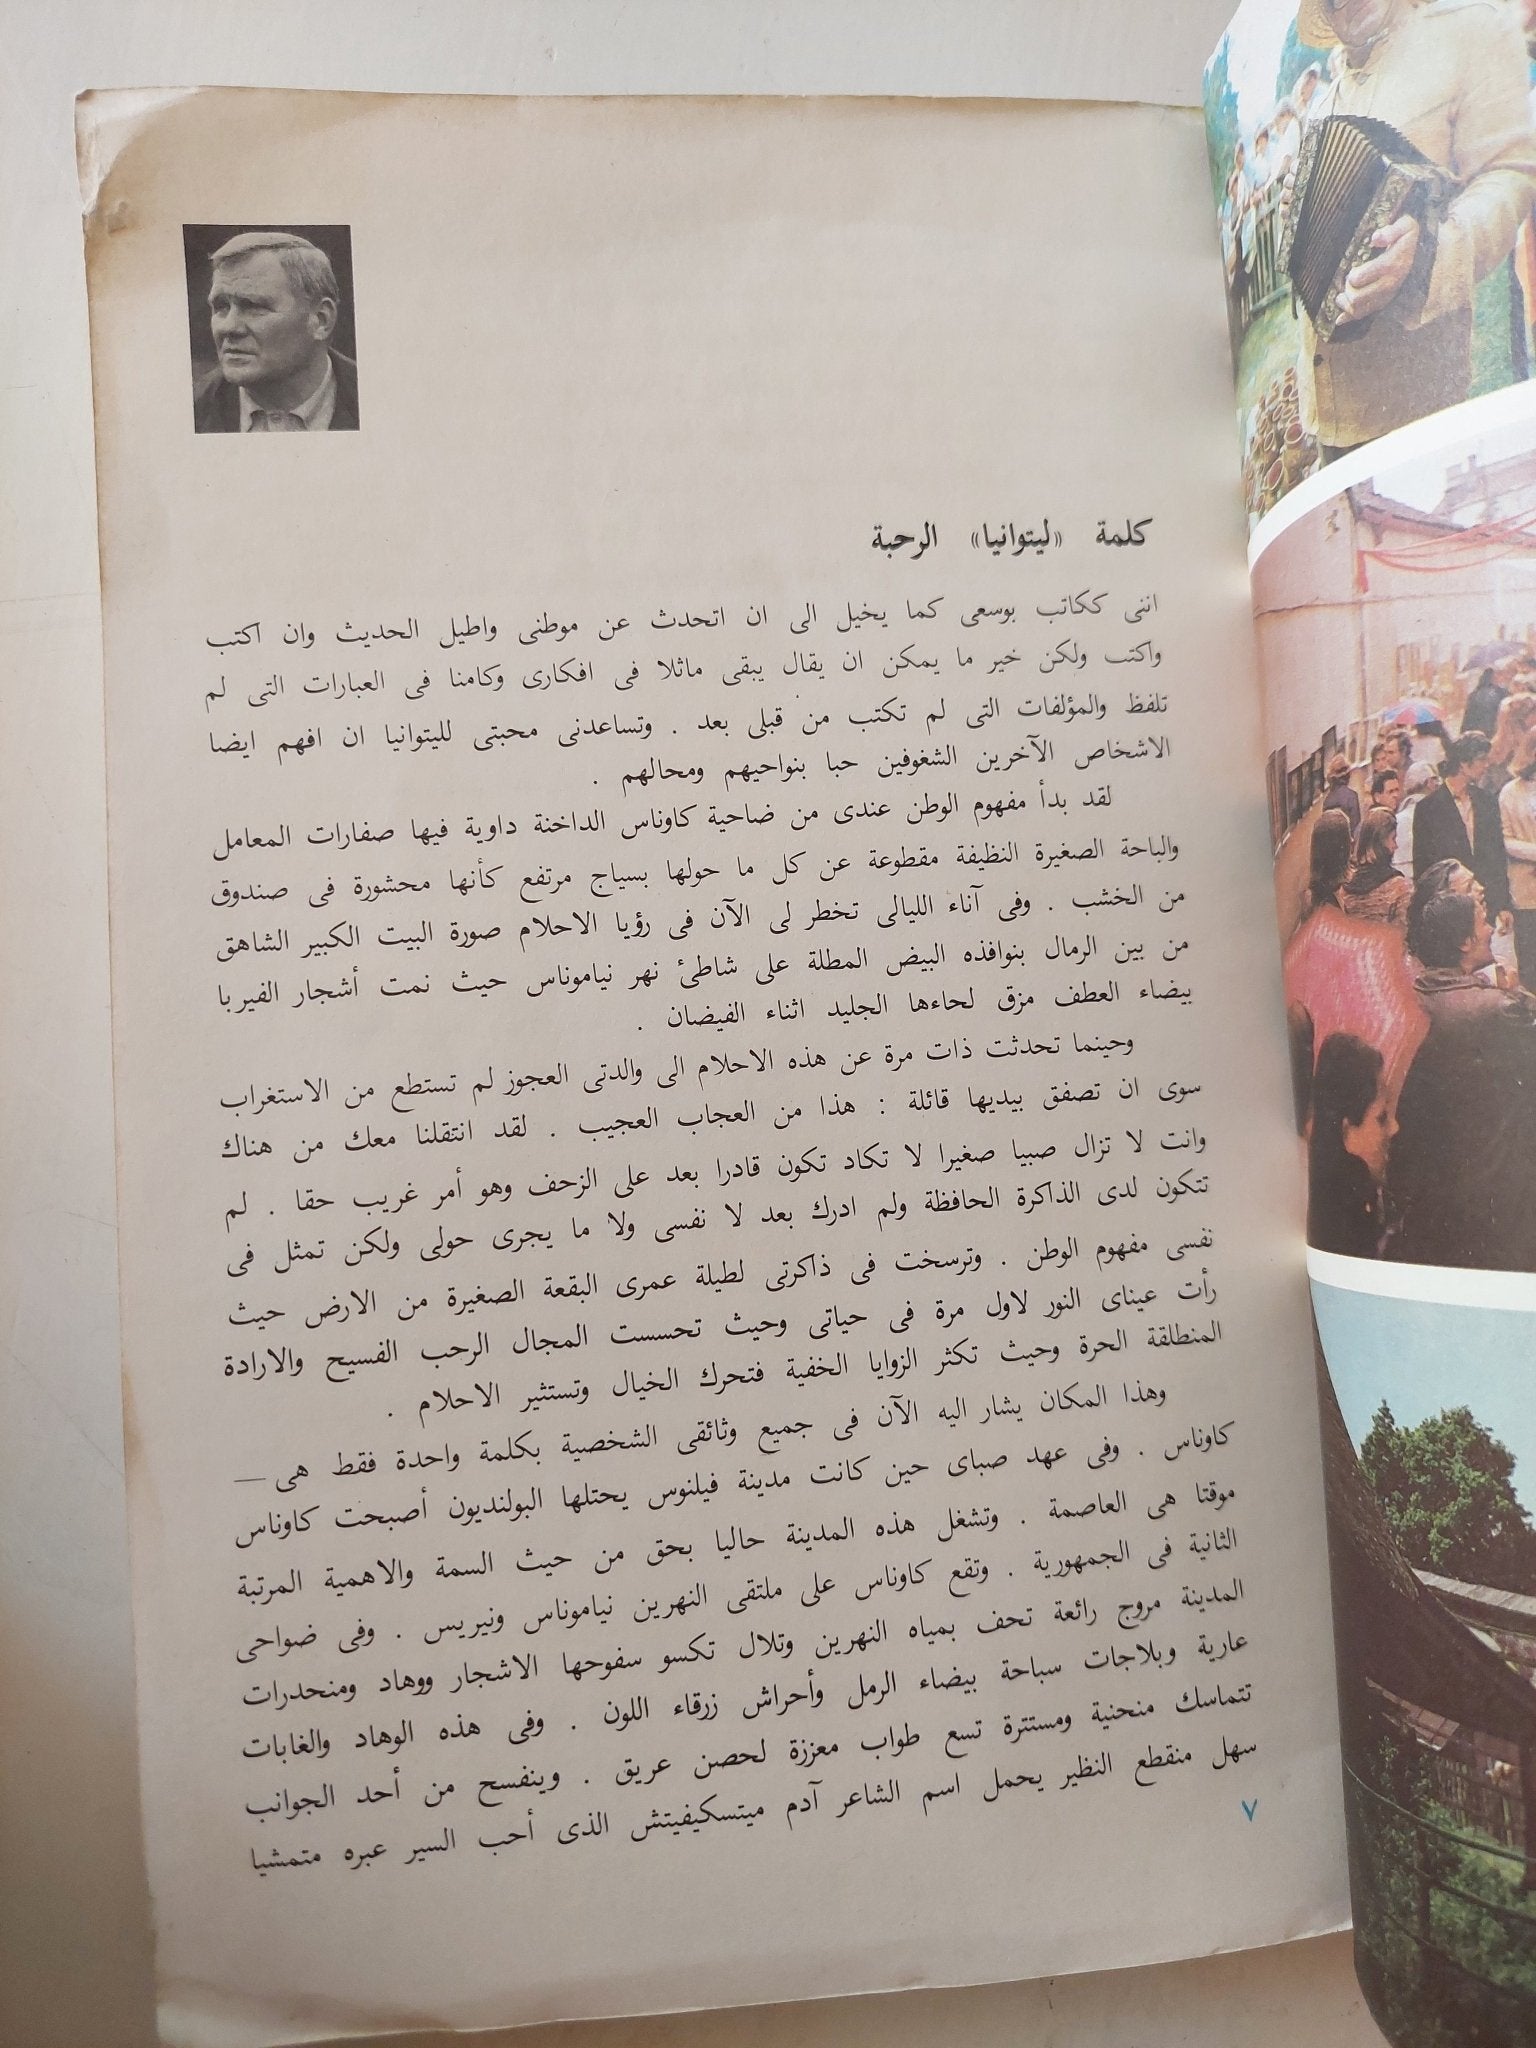 كلمة «ليتوانيا» الرحبة
اننى ككاتب بوسعى كما يخيل الى ان اتحدث عن موطنى واطيل الحديث وان اكتب
واكتب ولكن خير ما يمكن ان يقال يبقى ماثلا فى افكارى وكامنا فى العبارات التى لم
تلفظ والمؤلفات التى لم تكتب من قبلى بعد . وتساعدنى محبتى لليتوانيا ان افهم ايضا
الاشخاص الآخرين الشغوفين حبا بنواحيهم ومحالهم .
لقد بدأ مفهوم الوطن عندى من ضاحية كاوناس الداخنة داوية فيها صفارات المعامل
والباحة الصغيرة النظيفة مقطوعة عن كل ما حولها بسياج مرتفع كأنها محشورة فى صندوق
من الخشب . وفى آناء الليالى تخطر لى الآن فى رؤيا الاحلام صورة البيت الكبير الشاهق
من بين الرمال بنوافذه البيض المطلة على شاطئ نهر نياموناس حيث نمت أشجار الفيربا
بيضاء العطف مزق لحاءها الجليد اثناء الفيضان .
وحينما تحدثت ذات مرة عن هذه الاحلام الى والدتى العجوز لم تستطع من الاستغراب
سوى ان تصفق بيديها قائلة : هذا من العجاب العجيب . لقد انتقلنا معك من هناك
وانت لا تزال صبيا صغيرا لا تكاد تكون قادرا بعد على الزحف وهو أمر غريب حقا . لم
تتكون لدى الذاكرة الحافظة ولم ادرك بعد لا نفسى ولا ما يجرى حولى ولكن تمثل فى
نفسى مفهوم الوطن . وترسخت فى ذاكرتى لطيلة عمرى البقعة الصغيرة من الارض حيث
رأت عيناى النور لاول مرة فى حياتى وحيث تحسست المجال الرحب الفسيح والارادة
المنطلقة الحرة وحيث تكثر الزوايا الخفية فتحرك الخيال وتستثير الاحلام .
وهذا المكان يشار اليه الآن فى جميع وثائقى الشخصية بكلمة واحدة فقط هى —
كاوناس . وفى عهد صباى حين كانت مدينة فيلنوس يحتلها البولنديون أصبحت كاوناس
موقتا هى العاصمة . وتشغل هذه المدينة حاليا بحق من حيث السمة والاهمية المرتبة
الثانية فى الجمهورية . وتقع كاوناس على ملتقى النهرين نياموناس ونيريس . وفى ضواحى
المدينة مروج رائعة تحف بمياه النهرين وتلال تكسو سفوحها الاشجار ووهاد ومنحدرات
عارية وبلاجات سباحة بيضاء الرمل وأحراش زرقاء اللون . وفى هذه الوهاد والغابات
تتماسك منحنية ومستترة تسع طواب معززة لحصن عريق . وينفسح من أحد الجوانب
سهل منقطع النظير يحمل اسم الشاعر آدم ميتسكيفيتش الذى أحب السير عبره متمشيا
٧